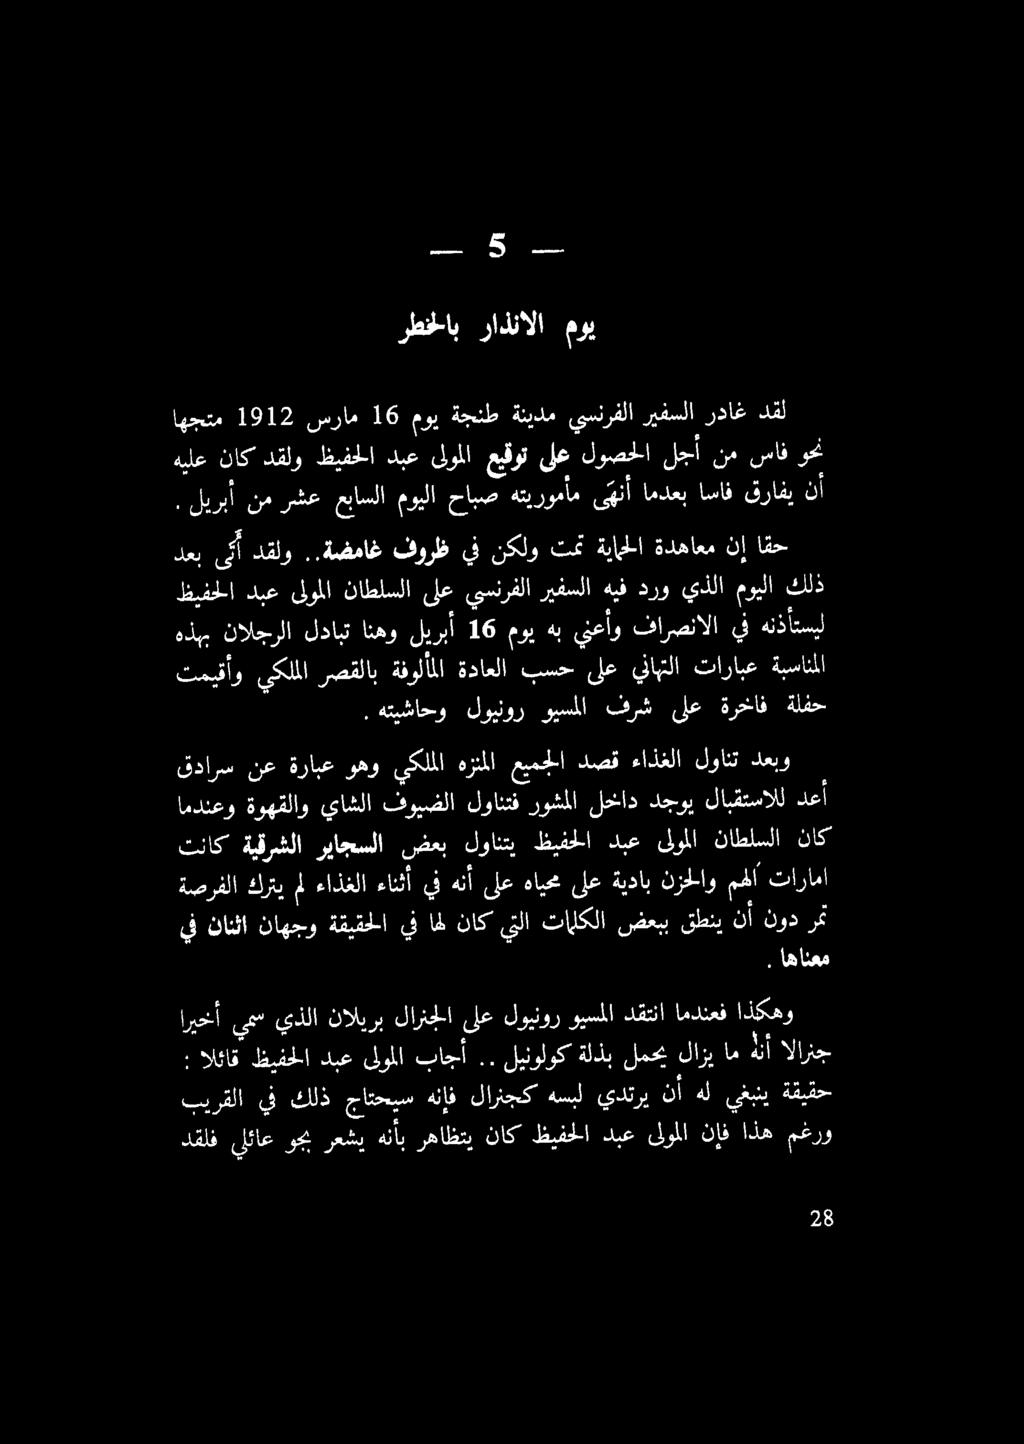 — 5 —
يوم الانذار بالخطر
لقد غادر السفير الفرنسي مدينة طنجة يوم 16 مارس 1912 متجها
نحو فاس من أجل الحصول على توقيع المولى عبد الحفيظ ولقد كان عليه
أن يفارق فاسا بعدما أنهَى مأموريته صباح اليوم السابع عشر من أبريل .
حقا إن معاهدة الحماية تمت ولكن في ظروف غامضة .. ولقد أتَى بعد
ذلك اليوم الذي ورد فيه السفير الفرنسي على السلطان المولى عبد الحفيظ
ليستأذنه في الانصراف وأعني به يوم 16 أبريل وهنا تبادل الرجلان بهذه
المناسبة عبارات التهاني على حسب العادة المألوفة بالقصر الملكي وأقيمت
حفلة فاخرة على شرف المسيو رونيول وحاشيته .
وبعد تناول الغذاء قصد الجميع المنزه الملكي وهو عبارة عن سرادق
أعد للاستقبال يوجد داخل المشور فتناول الضيوف الشاي والقهوة وعندما
كان السلطان المولى عبد الحفيظ يتناول بعض السجاير الشرقية كانت
امارات الهم والحزن بادية على محياه على أنه في أثناء الغذاء لم يترك الفرصة
تمر دون أن ينطق ببعض الكلمات التي كان لها في الحقيقة وجهان اثنان في
معناها .
وهكذا فعندما انتقد المسيو رونيول على الجنرال بريلان الذي سمي أخيرا
جنرالا أنه ما يزال يحمل بذلة كولونيل .. أجاب المولى عبد الحفيظ قائلا :
حقيقة ينبغي له أن يرتدي لبسه كجنرال فإنه سيحتاج ذلك في القريب
ورغم هذا فإن المولى عبد الحفيظ كان يتظاهر بأنه يشعر بجو عائلي فلقد
28